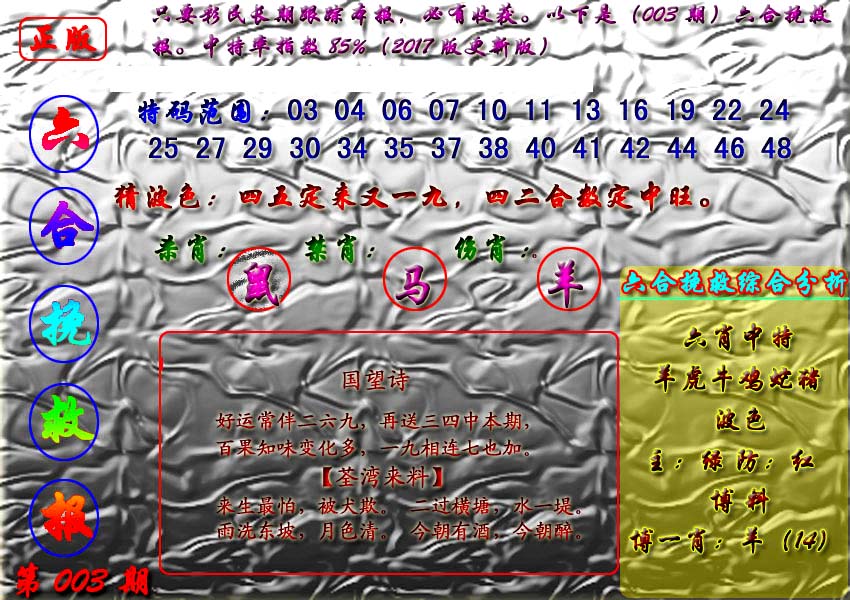 正版
只要彩民长期跟踪本报，必有收获。以下是（003期）六合挽救
报。中特率指数85%（2017版更新版）
六合挽救报
第003期
特码范围：03 04 06 07 10 11 13 16 19 22 24
25 27 29 30 34 35 37 38 40 41 42 44 46 48
猜波色：四五定来又一九，四二合数定中旺。
杀肖：鼠 禁肖：马 伤肖：羊
国望诗
好运常伴二六九，再送三四中本期，
百果知味变化多，一九相连七也加。
【荃湾来料】
来生最怕，被犬欺。 二过横塘，水一堤。
雨洗东坡，月色清。 今朝有酒，今朝醉。
六合挽救综合分析
六肖中特
羊虎牛鸡蛇猪
波色
主：绿防：红
博料
博一肖：羊（14）